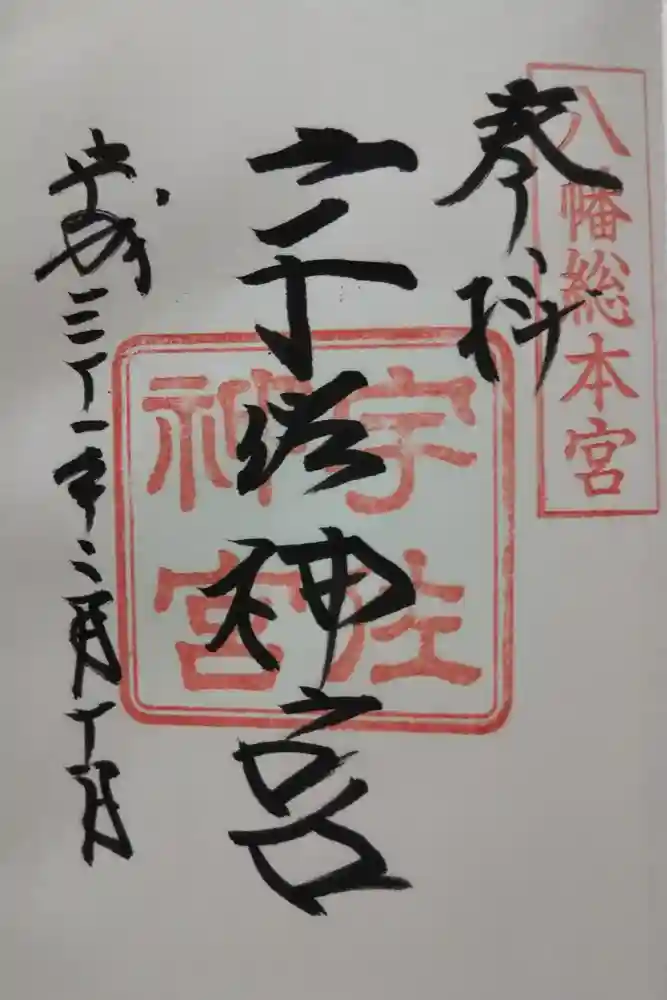 八幡総本宮
奉拝
宇佐神宮
宇佐神宮
平成三十一年二月十日